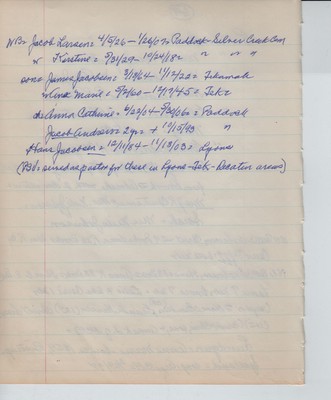 NB= Jacob Larsen= 4/5/26 - 1/26/07= Paddock - Silver Creek Cem
w Kerstine= 5/31/29 - 10/24/82 " " "
son= James Jacobsen= 3/19/64 - 11/12/22= Tekamah
w Ane Marie= 5/7/60 - 12/17/45= Tekz
dt= Anna Cathrine= 4/23/04 - 5/26/06= Paddock
Jacob Andsen= 2 yrs + 10/15/93 "
Hans Jacobsen= 12/11/84 - 11/13/03= Lyons
(PBL= served as pastor for these in Lyons - Tek - Decatur areas)